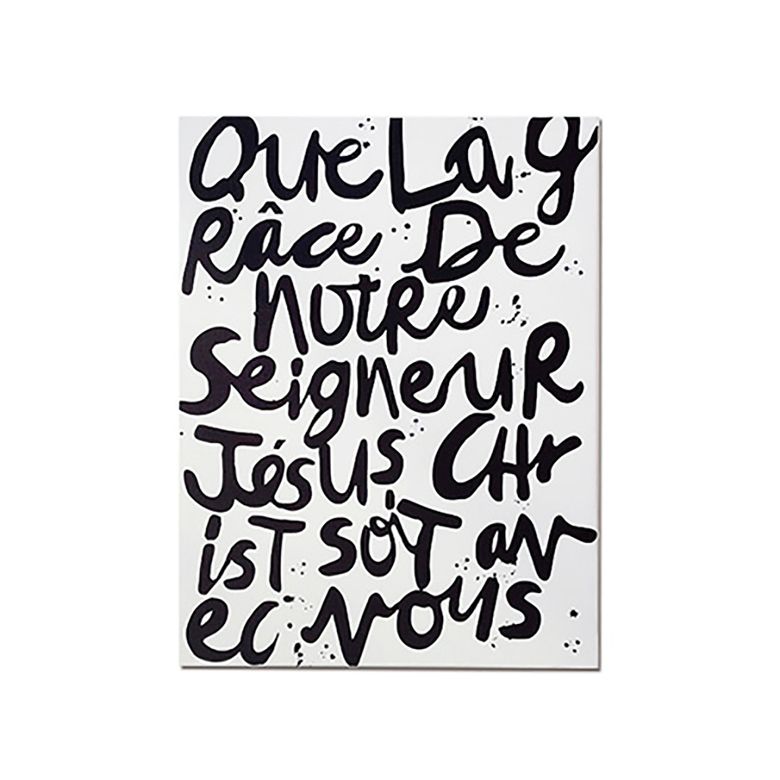 Que La g
râce De
notre
SeigneuR
Jésus CHr
isT soiT av
ec vous